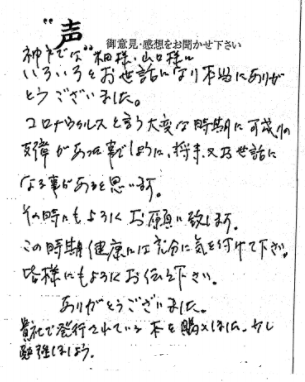 "声"
御意見・感想をお聞かせ下さい
様・山口様に
いろいろとお世話になり本当にありが
とうございました。
コロナウィルスと言う大変な時期に
支障があった事でしょうに、将来又お世話に
なる事があると思います。
その時にもよろしくお願い致します。
この時期健康には充分に気を付けて下さい。
皆様にもよろしくお伝え下さい。
ありがとうございました。
貴社で発行されている本を購入しました。少し
勉強しましょう。